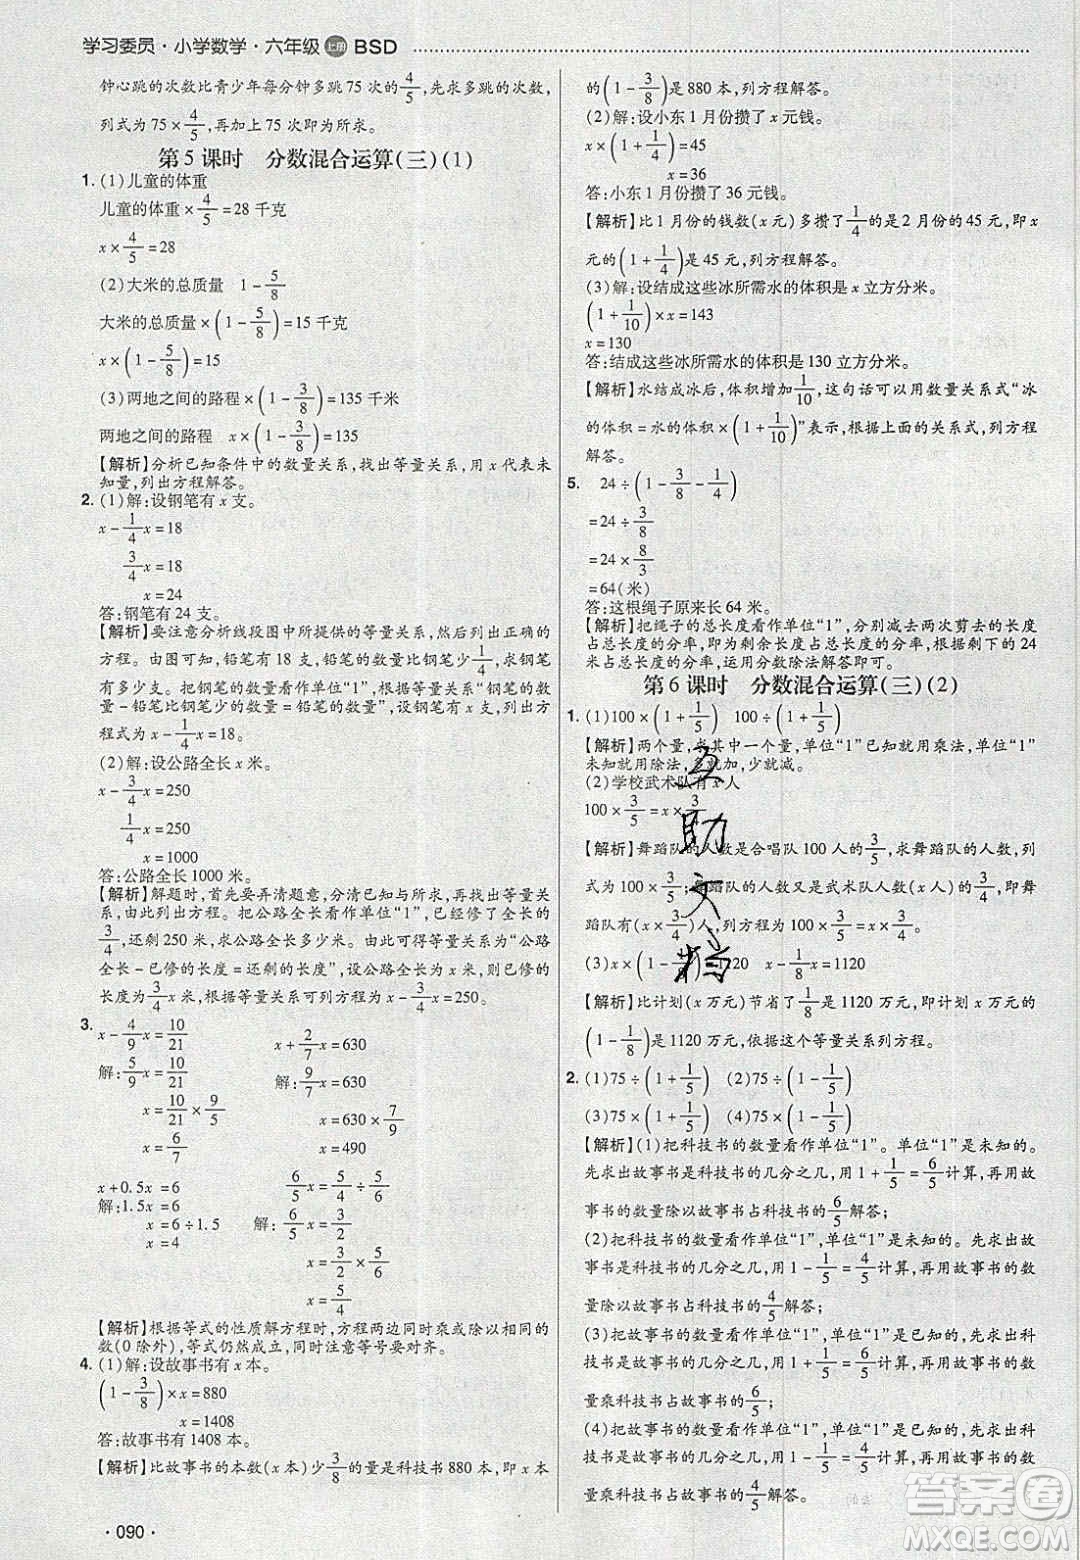 学习委员·小学数学·六年级 上册 BSD
钟心跳的次数比青少年每分钟多跳 75 次的4/5,先求多跳的次数,
列式为 75×4/5,再加上 75 次即为所求。
第 5 课时 分数混合运算(三)(1)
1. (1)儿童的体重
儿童的体重×4/5=28 千克
x×4/5=28
(2)大米的总质量 1-5/8
大米的总质量×(1-5/8)=15 千克
x×(1-5/8)=15
(3)两地之间的路程×(1-3/8)=135 千米
两地之间的路程 x×(1-3/8)=135
【解析】分析已知条件中的数量关系,找出等量关系,用 x 代表未
知量,列出方程解答。
2. (1)解:设钢笔有 x 支。
x-1/4x=18
3/4x=18
x=24
答:钢笔有 24 支。
【解析】要注意分析线段图中所提供的等量关系,然后列出正确的
方程。由图可知,铅笔有 18 支,铅笔的数量比钢笔少1/4,求钢笔
有多少支。把钢笔的数量看作单位“1”,根据等量关系“钢笔的数
量-铅笔比钢笔少的数量=铅笔的数量”,设钢笔有 x 支,列出
方程式为 x-1/4x=18。
(2)解:设公路全长 x 米。
x-3/4x=250
1/4x=250
x=1000
答:公路全长 1000 米。
【解析】解题时,首先要弄清题意,分清已知与所求,再找出基本关
系,由此列出方程。把公路全长看作单位“1”,已修了全长的
3/4,还剩 250 米,求公路全长多少米。由此可得等量关系“公路
全长-已修的长度=还剩的长度”,设公路全长 x 米,已修的
长度为3/4x 米,根据这个等量关系可列方程 x-3/4x=250。
3. x-4/9x=10/21 x+2/7x=630
解:5/9x=10/21 解:9/7x=630
x=10/21×9/5 x=630×7/9
x=6/7 x=490
x+0.5x=6 6/5x=3/4÷1/2
解:1.5x=6 解:6/5x=3/2
x=6÷1.5 x=3/2×5/6
x=4 x=5/4
【解析】根据等式的性质解方程时,方程两边同时乘或除以相同的
数(0 除外),等式仍然成立,同时注意等号要对齐。
4. (1)解:设故事书有 x 本。
(1-3/8)×x=880
x=1408
答:故事书有 1408 本。
【解析】比故事书的本数(x 本)少3/8的量是科技书 880 本,即 x 本
·090·
的(1-3/8)是 880 本,列方程解答。
(2)解:设小东 1 月份攒了 x 元钱。
x×(1+1/4)=45
x=36
答:小东 1 月份攒了 36 元钱。
【解析】比 1 月份的钱数(x 元)多攒了1/4的是 2 月份的 45 元,即 x
元的(1+1/4)是 45 元,列方程解答。
(3)解:设结成这些冰所需水的体积是 x 立方分米。
(1+1/10)×x=143
x=130
答:结成这些冰所需水的体积是 130 立方分米。
【解析】水结成冰后,体积增加1/10,这句话可以用数量关系式“冰
的体积=水的体积×(1+1/10)”表示,根据上面的关系式,列方程
解答。
5. 24÷(1-3/8-1/4)
=24÷3/8
=24×8/3
=64(米)
答:这根绳子原来长 64 米。
【解析】把绳子的总长度看作单位“1”,分别减去两次剪去的长度
占总长度的分率,即为剩余长度占总长度的分率,用剩下的 24
米占总长度的分率,运用分数除法解答即可。
第 6 课时 分数混合运算(三)(2)
1. (1)100×(1+1/5) 100÷(1+1/5)
【解析】两个量,当其中一个量,单位“1”已知就用乘法,单位“1”
未知就用除法,多就加,少就减。
(2)学校武术队有 x 人
100×3/5=x×3/4
【解析】舞蹈队的人数是合唱队 100 人的3/5,求舞蹈队的人数,列
式为 100×3/5;舞蹈队的人数又是武术队人数(x 人)的3/4,即舞
蹈队有(x×3/4)人,列方程为 100×3/5=x×3/4。
(3)x×(1-1/8)=1120 x-1/8x=1120
【解析】比计划(x 万元)节省了1/8是 1120 万元,即计划 x 万元的
(1-1/8)是 1120 万元,根据这个等量关系列方程。
2. (1)75÷(1+1/5) (2)75÷(1-1/5)
(3)75×(1+1/5) (4)75×(1-1/5)
【解析】(1)把科技书的数量看作单位“1”。单位“1”是未知的。
先求出故事书是科技书的几分之几,用 1+1/5=6/5计算,再用故
事书的数量除以故事书占科技书的6/5解答;
(2)把科技书的数量看作单位“1”,单位“1”是未知的。先求出故
事书是科技书的几分之几,用 1-1/5=4/5计算,再用故事书的数
量除以故事书占科技书的4/5解答;
(3)把故事书的数量看作单位“1”,单位“1”是已知的,先求出科
技书是故事书的几分之几,用 1+1/5=6/5计算,再用故事书的数
量乘科技书占故事书的6/5;
(4)把故事书的数量看作单位“1”,单位“1”是已知的。先求出
科技书是故事书的几分之几,用 1-1/5=4/5计算,再用故事书的
数量乘科技书占故事书的4/5解答。
互助文档
答案圈
MXQE.COM